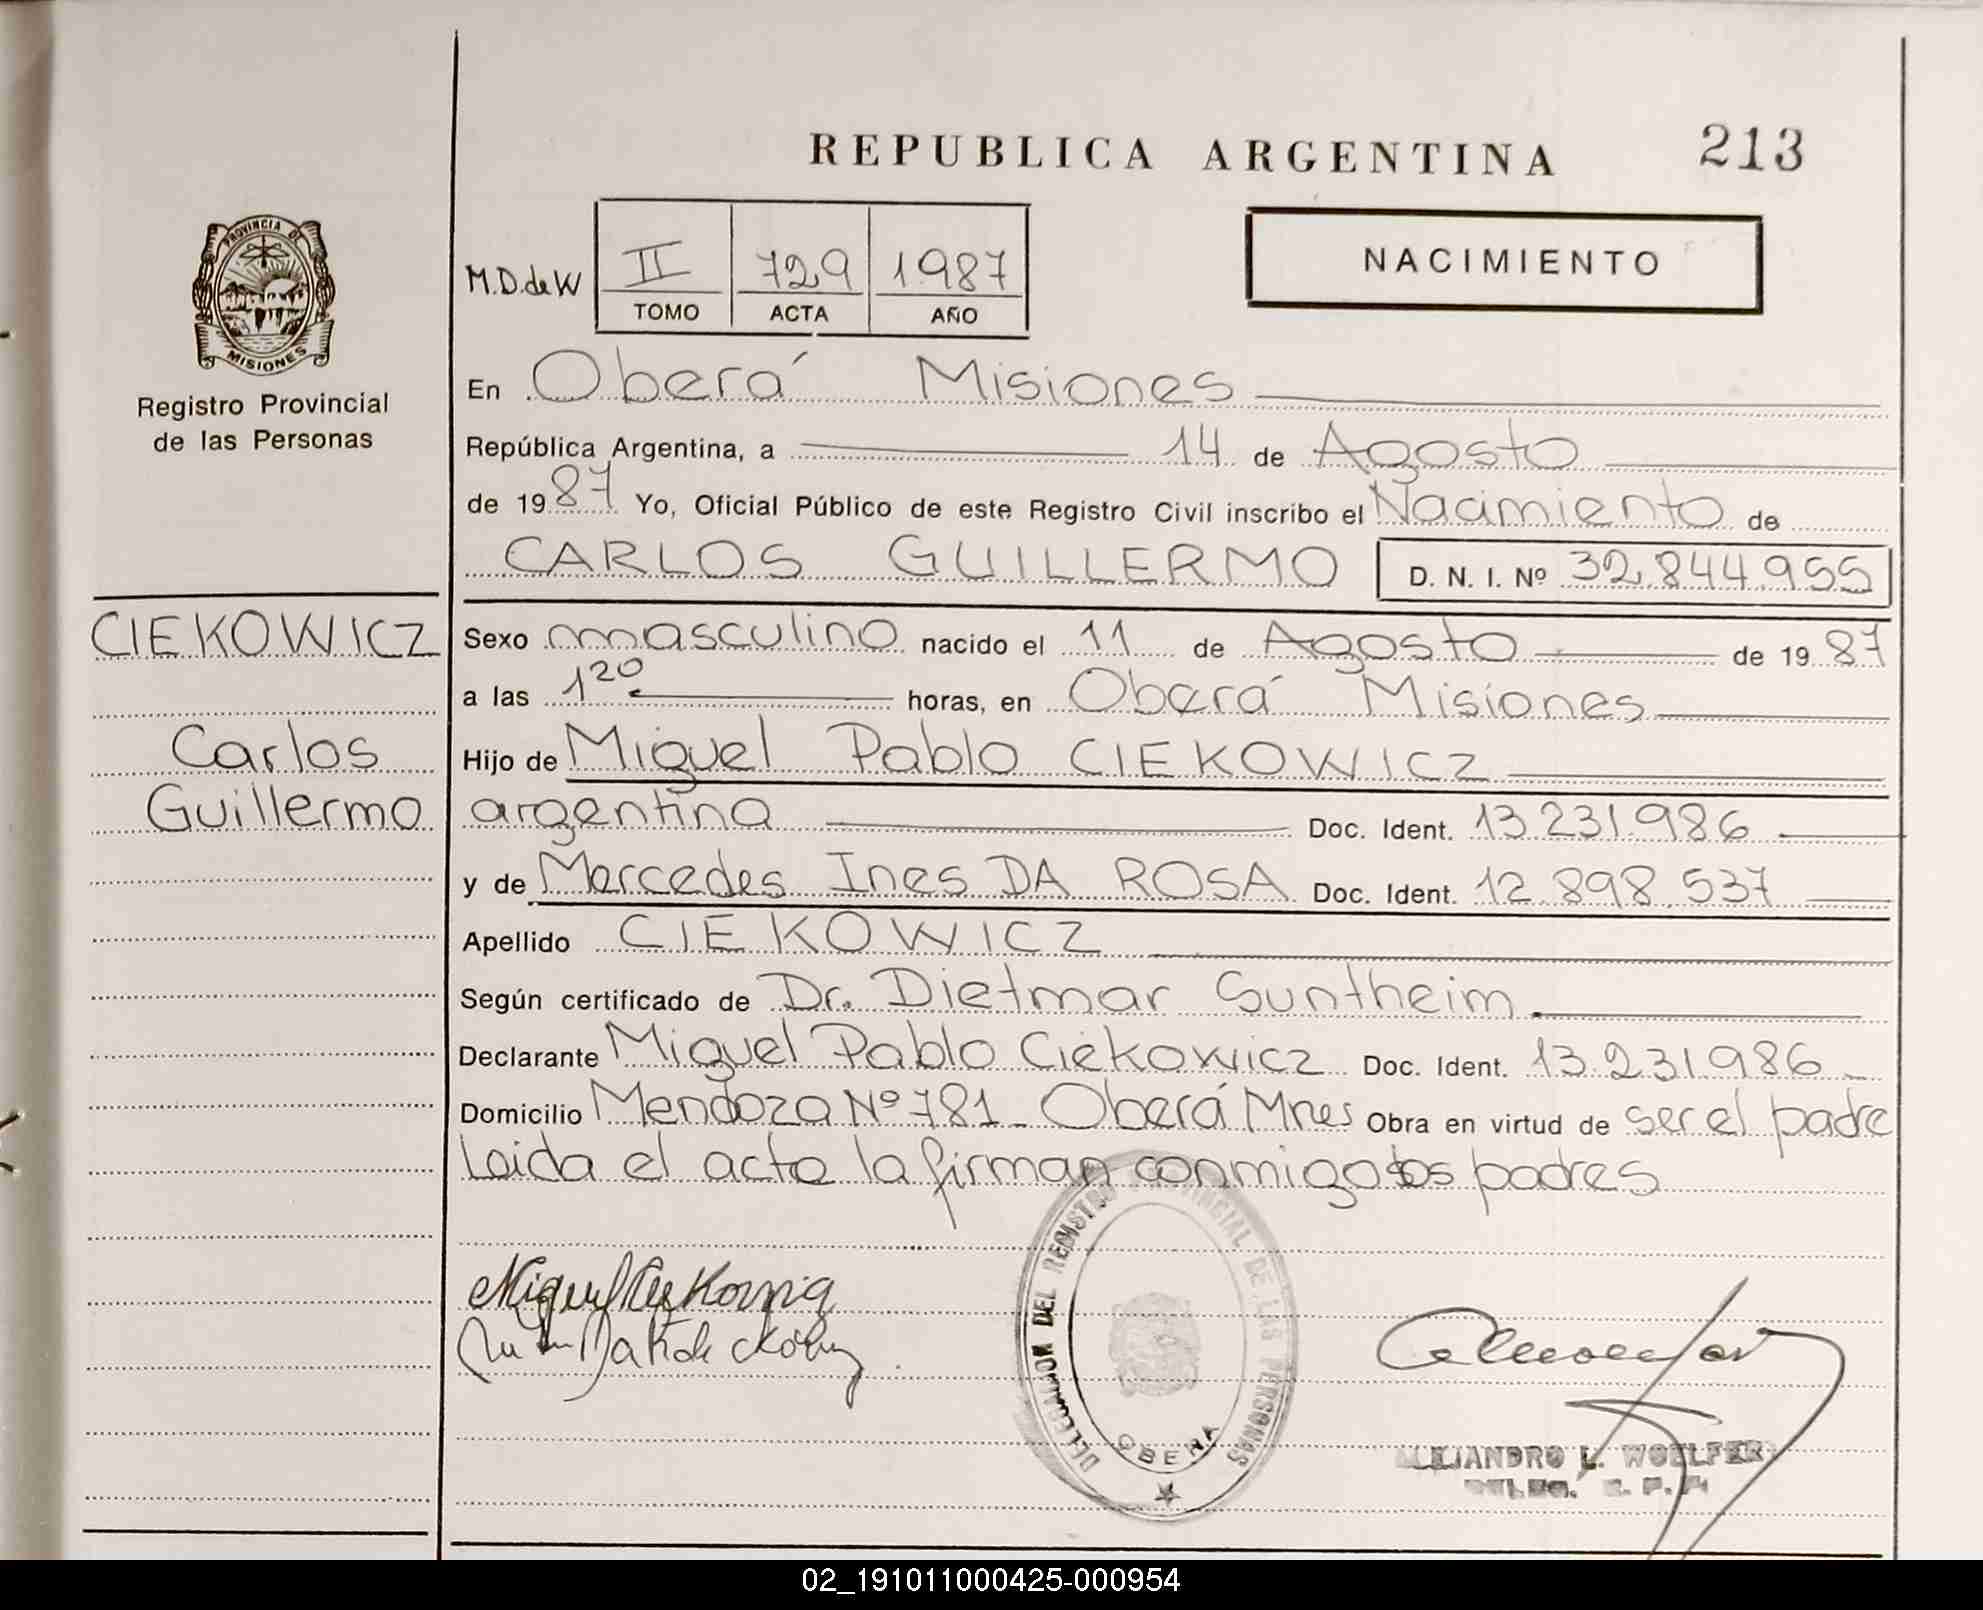 REPUBLICA ARGENTINA
213
PROVINCIA DE
MISIONES
Registro Provincial
de las Personas
M.D.deW
II
TOMO
729
ACTA
1987
AÑO
NACIMIENTO
En Oberá Misiones
República Argentina, a 14 de Agosto
de 1987 Yo, Oficial Público de este Registro Civil inscribo el Nacimiento de
CARLOS GUILLERMO D. N. I. Nº 32.844.955
CIEKOWICZ
Carlos
Guillermo
Sexo masculino nacido el 11 de Agosto de 1987
a las 1²⁰ horas, en Oberá Misiones
Hijo de Miguel Pablo CIEKOWICZ
argentina Doc. Ident. 13.231.986
y de Mercedes Ines DA ROSA Doc. Ident. 12.898.537
Apellido CIEKOWICZ
Según certificado de Dr. Dietmar Suntheim
Declarante Miguel Pablo Ciekowicz Doc. Ident. 13.231.986
Domicilio Mendoza Nº 781 - Oberá Mnes Obra en virtud de ser el padre
Leida el acta la firman conmigo los padres
DELEGACION DEL REGISTRO PROVINCIAL DE LAS PERSONAS
OBERA
ALEJANDRO L. WOELFERT
02_191011000425-000954